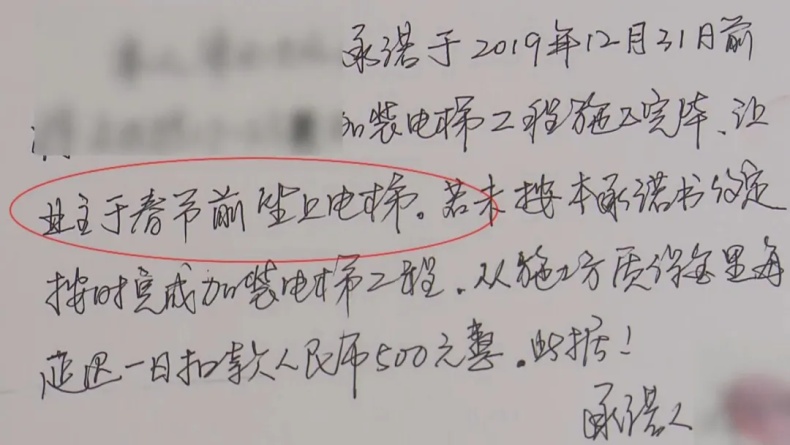 承诺于2019年12月31日前
加装电梯工程施工完毕、让
业主于春节前坐上电梯。若未按本承诺书约定
按时完成加装电梯工程，从施工方质保金里每
延迟一日扣款人民币500元整。此据！
承诺人